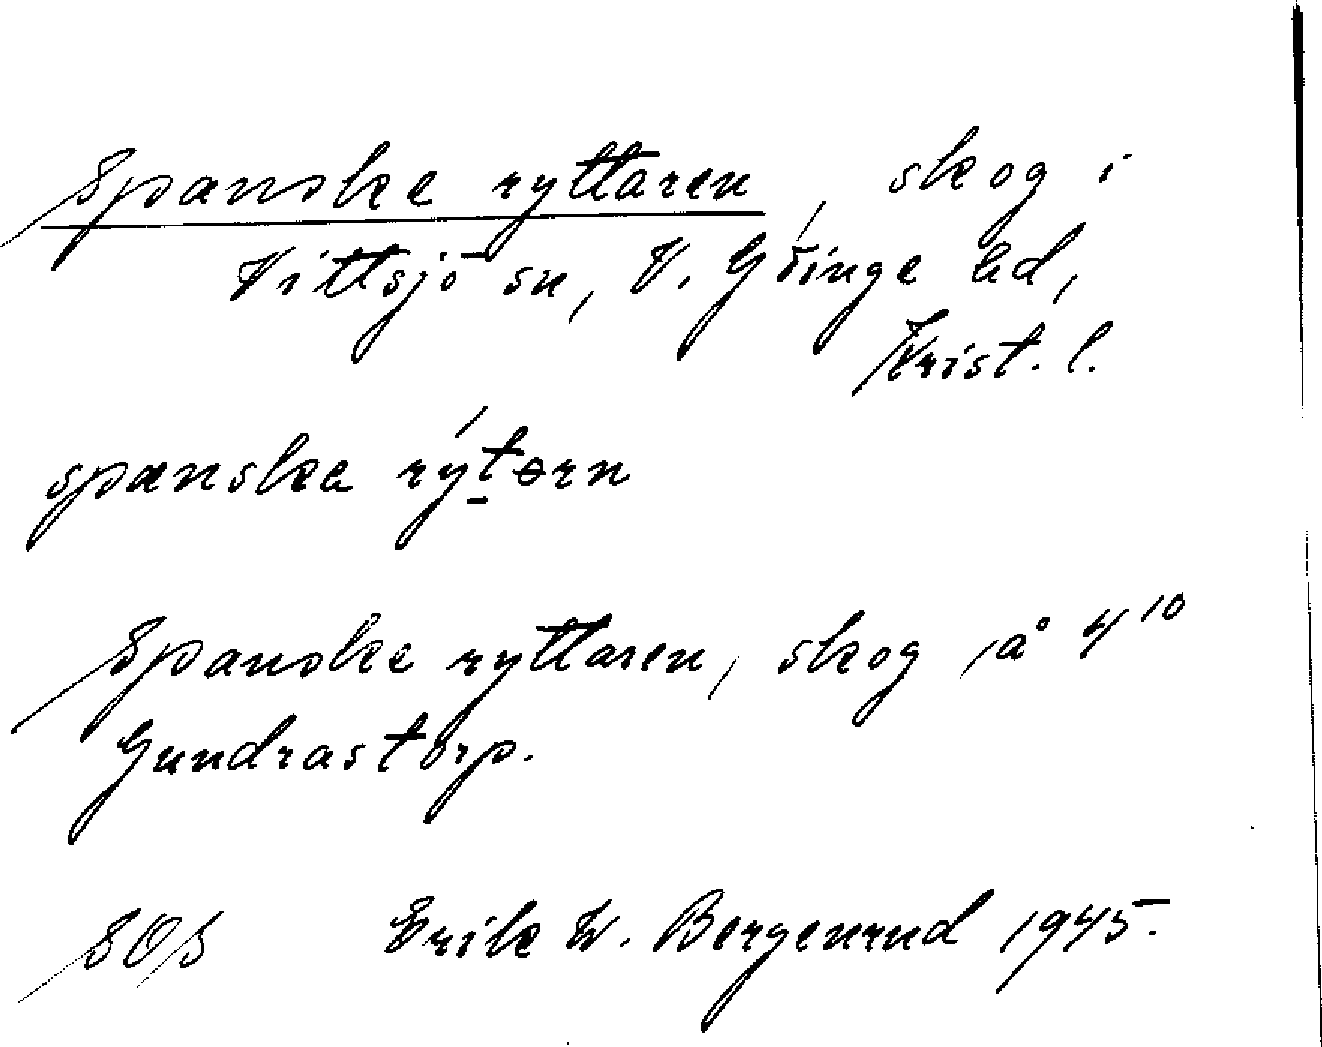 Spanske ryttaren, skog i
Vittsjö sn, V. Göinge hd,
Krist. l.
spanska rýt̲ərn
Spanske ryttaren, skog å 4¹⁰
Gundrastorp.
SOS Erik W. Bergenrud 1945.